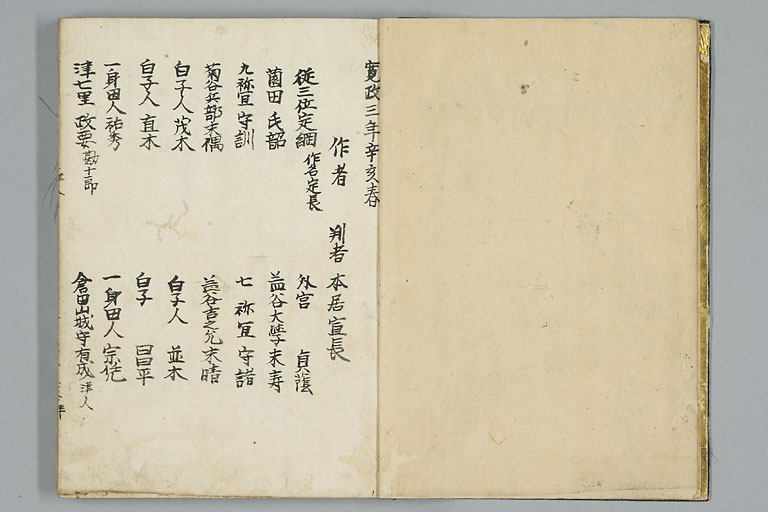 寛政三年辛亥春
作者 判者 本居宣長
従三位定綱 作名定長 外宮 貞蔭
薗田氏韶 益谷大学末寿
九祢冝守訓 七祢冝守諸
菊谷兵部末偶 益谷吉之允末晴
白子人茂木 白子人並木
白子人直木 白子 昌平
一身田人祐秀 一身田人宗
津七里政要勘十郎 倉田山城守有成津人